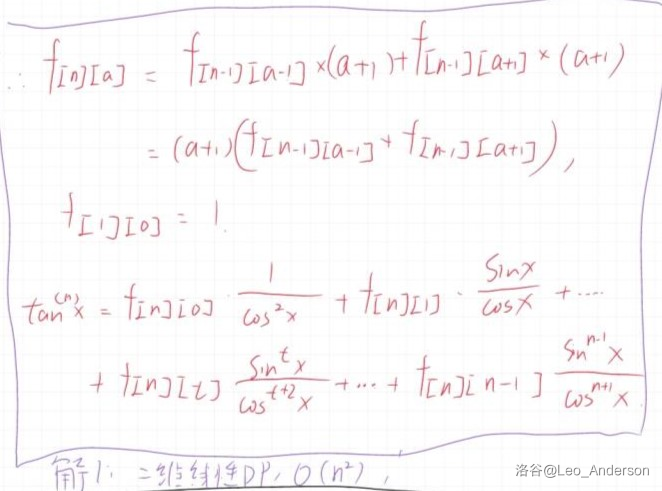 ∴ f[n][a] = f[n-1][a-1] × (a+1) + f[n-1][a+1] × (a+1)
= (a+1)(f[n-1][a-1] + f[n-1][a+1]),
f[1][0] = 1.
tan⁽ⁿ⁾x = f[n][0] · 1/cos²x + f[n][1] · sinx/cosx + ....
+ f[n][t] sinᵗx/cosᵗ⁺²x + ... + f[n][n-1] sinⁿ⁻¹x/cosⁿ⁺¹x
解1: 二维线性DP, O(n²),
洛谷@Leo_Anderson